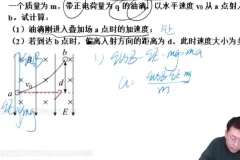 一个质量为 m、带正电荷量为 q 的油滴，以水平速度 v₀ 从 a 点射入
b。试计算：
(1) 油滴刚进入叠加场 a 点时的加速度；
(2) 若到达 b 点时，偏离入射方向的距离为 d，此时速度大小为多
a
b
d
E
1) qv₀B - qE - mg = ma
a = qv₀B - qE - mg / m